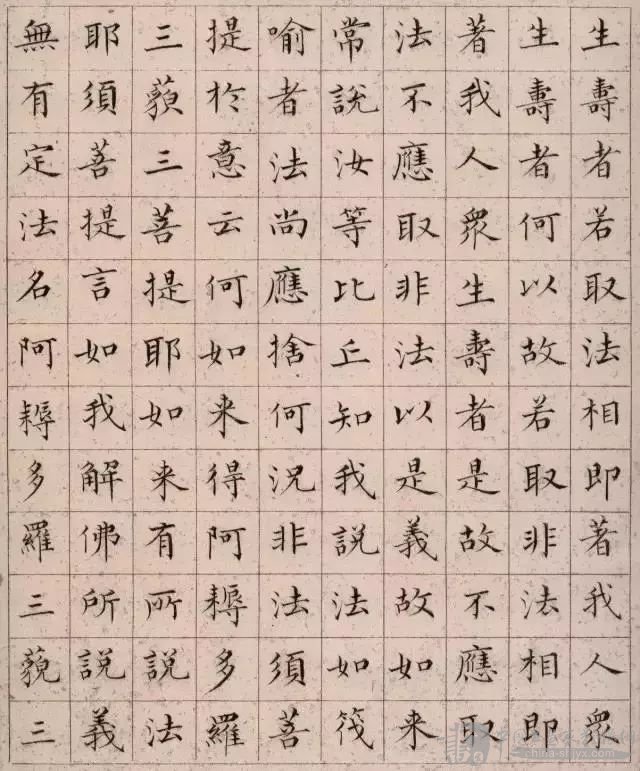 生壽者若取法相即著我人眾
生壽者何以故若取非法相即
著我人眾生壽者是故不應取
法不應取非法以是義故如来
常說汝等比丘知我說法如筏
喻者法尚應捨何況非法須菩
提於意云何如来得阿耨多羅
三藐三菩提耶如来有所說法
耶須菩提言如我解佛所說義
無有定法名阿耨多羅三藐三